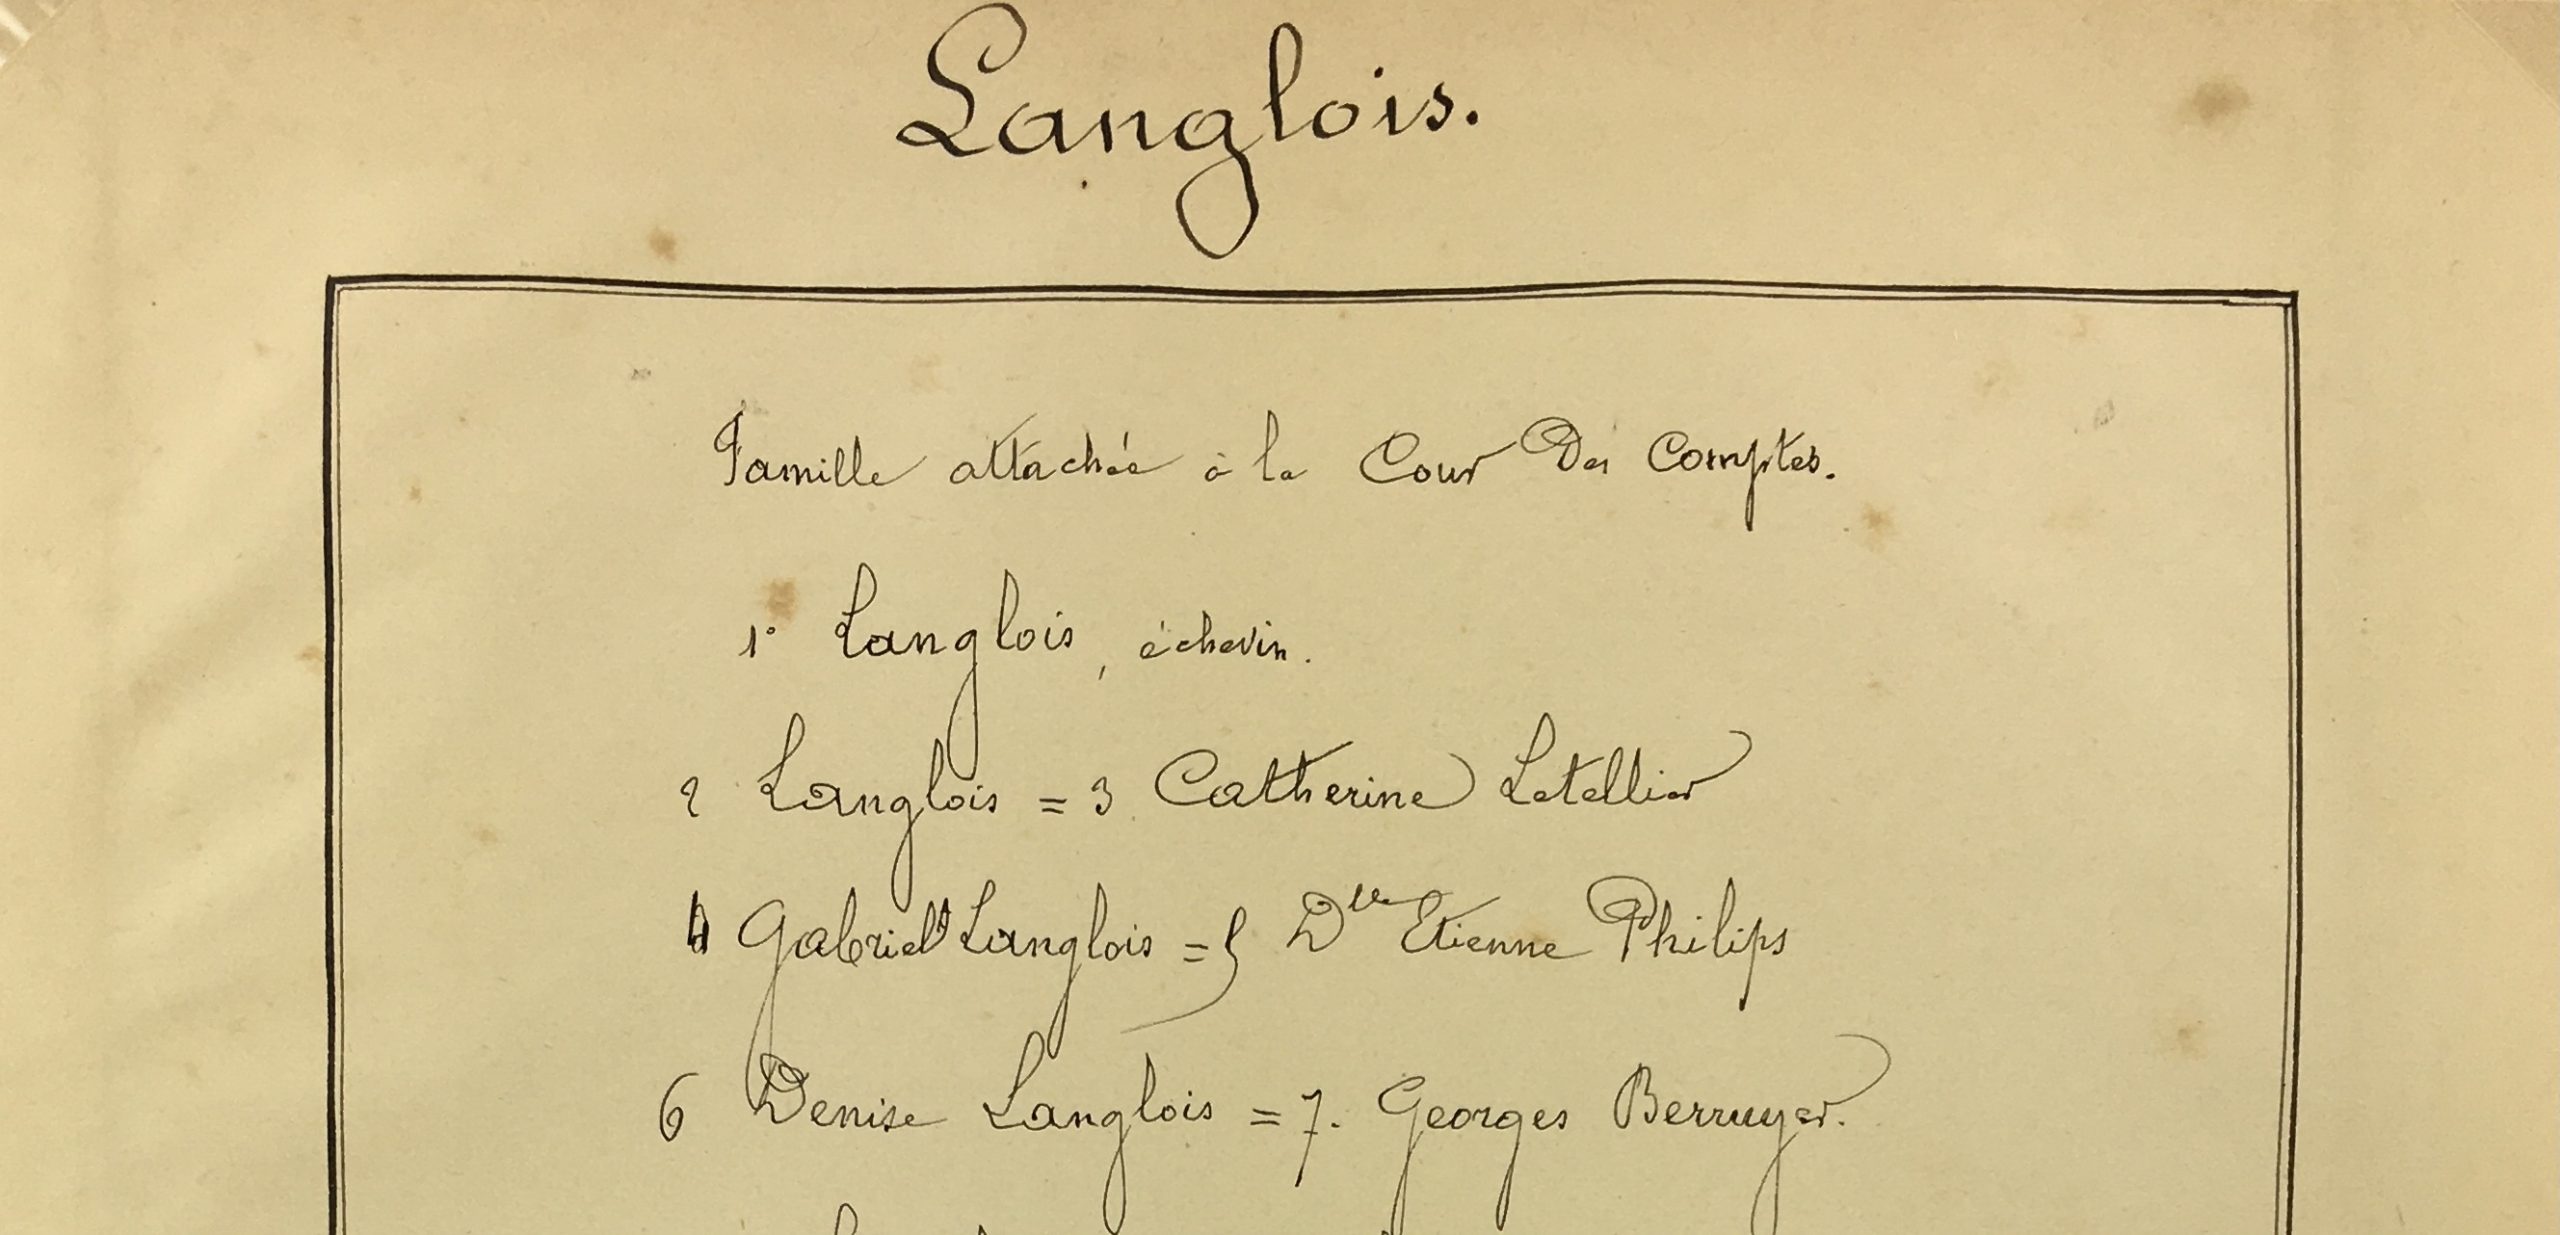 Langlois.
Famille attachée à la Cour Des Comptes.
1° Langlois, échevin.
2 Langlois = 3 Catherine Letellier
4 Gabriel Langlois = 5 Dlle Etienne Philips
6 Denise Langlois = 7. Georges Berruyer.